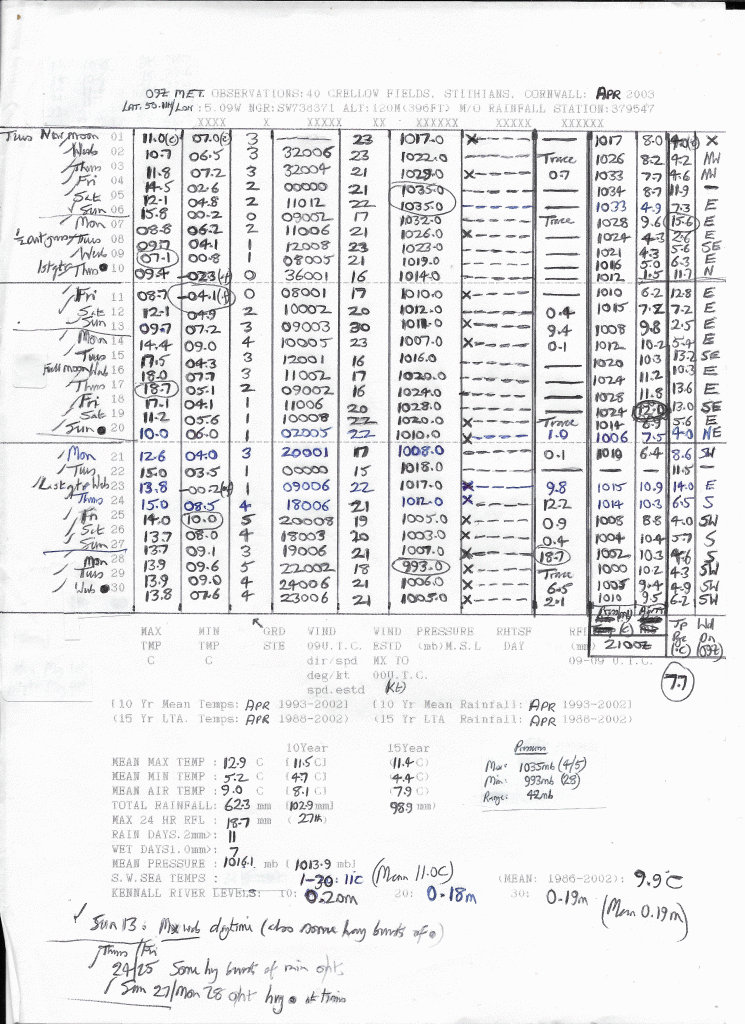 09Z MET. OBSERVATIONS:40 CRELLOW FIELDS, STITHIANS, CORNWALL: APR 2003
LAT. 50.11N/LON :5.09W NGR:SW738371 ALT:120M(396FT) M/O RAINFALL STATION:379547
XXXX X XXXXX XX XXXXXX XXXXX XXXXXX
Tues New moon 01 11.0(c) 07.0(c) 3 — 23 1017.0 x----- — 1017 8.0 x
Web 02 10.7 06.5 3 32006 23 1022.0 ----- Trace 1026 8.2 4.2 NW
Thms 03 11.8 07.2 3 32004 21 1029.0 ----- 0.7 1033 7.7 4.6 NW
Fri 04 14.5 02.6 2 00000 21 1035.0 ----- — 1034 8.7 11.9 —
Sat 05 12.1 04.8 2 11012 22 1035.0 ----- — 1033 4.9 7.3 E
Sun 06 15.8 00.2 0 09002 17 1032.0 ----- Trace 1028 9.6 15.6 E
Mon 07 08.8 06.2 2 11006 21 1026.0 x----- — 1024 4.3 2.6 E
Tues 08 09.7 04.1 1 12008 23 1023.0 ----- — 1021 4.3 5.6 SE
Web 09 07.1 00.8 1 08005 21 1019.0 ----- — 1016 5.0 6.3 E
1st qtr Thms 10 09.4 -02.3(f) 0 36001 16 1014.0 ----- — 1012 1.5 11.7 N
Fri 11 08.7 -04.1(f) 0 08001 17 1010.0 x----- — 1010 6.2 12.8 E
Sat 12 12.1 04.9 2 10002 20 1012.0 ----- 0.4 1015 7.8 7.2 E
Sun 13 09.7 07.2 3 09003 30 1011.0 x----- 9.4 1008 9.8 2.5 E
Mon 14 14.4 09.0 4 10005 23 1007.0 x----- 0.1 1012 10.2 5.4 E
Tues 15 17.5 04.3 3 12001 16 1016.0 ----- — 1020 10.3 13.2 SE
Full moon Web 16 18.0 07.7 3 11002 17 1020.0 ----- — 1024 11.2 10.3 E
Thms 17 18.7 05.1 2 09002 16 1024.0 ----- — 1028 11.8 13.6 E
Fri 18 17.1 04.1 1 11006 20 1028.0 ----- — 1024 12.0 13.0 SE
Sat 19 11.2 05.6 1 10008 22 1020.0 x----- Trace 1014 6.9 5.6 E
Sun 20 10.0 06.0 1 02005 22 1010.0 x----- 1.0 1006 7.5 4.0 NE
Mon 21 12.6 04.0 3 20001 17 1008.0 ----- 0.1 1010 6.4 8.6 SW
Tues 22 15.0 03.5 1 00000 15 1018.0 ----- — — — 11.5 —
Last qtr Web 23 13.8 -00.2(f) 1 09006 22 1017.0 x----- 9.8 1015 10.9 14.0 E
Thms 24 15.0 08.5 4 18006 21 1012.0 x----- 12.2 1014 10.3 6.5 S
Fri 25 14.0 10.0 5 20008 19 1005.0 x----- 0.9 1008 8.8 4.0 SW
Sat 26 13.7 08.0 4 18003 20 1003.0 x----- 0.4 1004 10.4 5.7 S
Sun 27 13.7 09.1 3 19006 21 1007.0 x----- 18.7 1002 10.3 4.6 S
Mon 28 13.9 09.6 5 22002 18 993.0 x----- Trace 1000 10.2 4.3 SW
Tues 29 13.9 09.0 4 24006 21 1006.0 x----- 6.5 1005 9.4 4.9 SW
Web 30 13.8 07.6 4 23006 21 1005.0 x----- 2.1 1010 9.5 6.2 SW
MAX MIN GRD WIND WIND PRESSURE RHTSF RFL
TMP TMP STE 09U.T.C. ESTD (mb)M.S.L DAY (mm)
C C dir/spd MX TO 09-09 U.T.C.
deg/kt 00U.T.C.
spd.estd (kt)
2100Z
(°C) (09Z)
7.7
[10 Yr Mean Temps: APR 1993-2002] [10 Yr Mean Rainfall: APR 1993-2002]
(15 Yr LTA. Temps: APR 1988-2002) (15 Yr LTA Rainfall: APR 1988-2002)
10Year 15Year Pressure
MEAN MAX TEMP : 12.9 C [11.5 C] (11.4 C) Max: 1035mb (4/5)
MEAN MIN TEMP : 5.2 C [4.7 C] (4.4 C) Min: 993mb (28)
MEAN AIR TEMP : 9.0 C [8.1 C] (7.9 C) Range: 42mb
TOTAL RAINFALL: 62.3 mm [102.9 mm] (98.9 mm)
MAX 24 HR RFL : 18.7 mm (27th)
RAIN DAYS.2mm>: 11
WET DAYS1.0mm>: 7
MEAN PRESSURE : 1016.1 mb [1013.9 mb]
S.W.SEA TEMPS : 1-30: 11°C (Mean 11.0C) (MEAN: 1986-2002): 9.9°C
KENNALL RIVER LEVELS: 10: 0.20m 20: 0.18m 30: 0.19m (Mean 0.19m)
Sun 13: Max wnb daytime (also some heavy bursts of ●)
Thms/Fri
24/25 Some hy bursts of rain o/nt
Sun 27/Mon 28 o/nt hvy ● at times